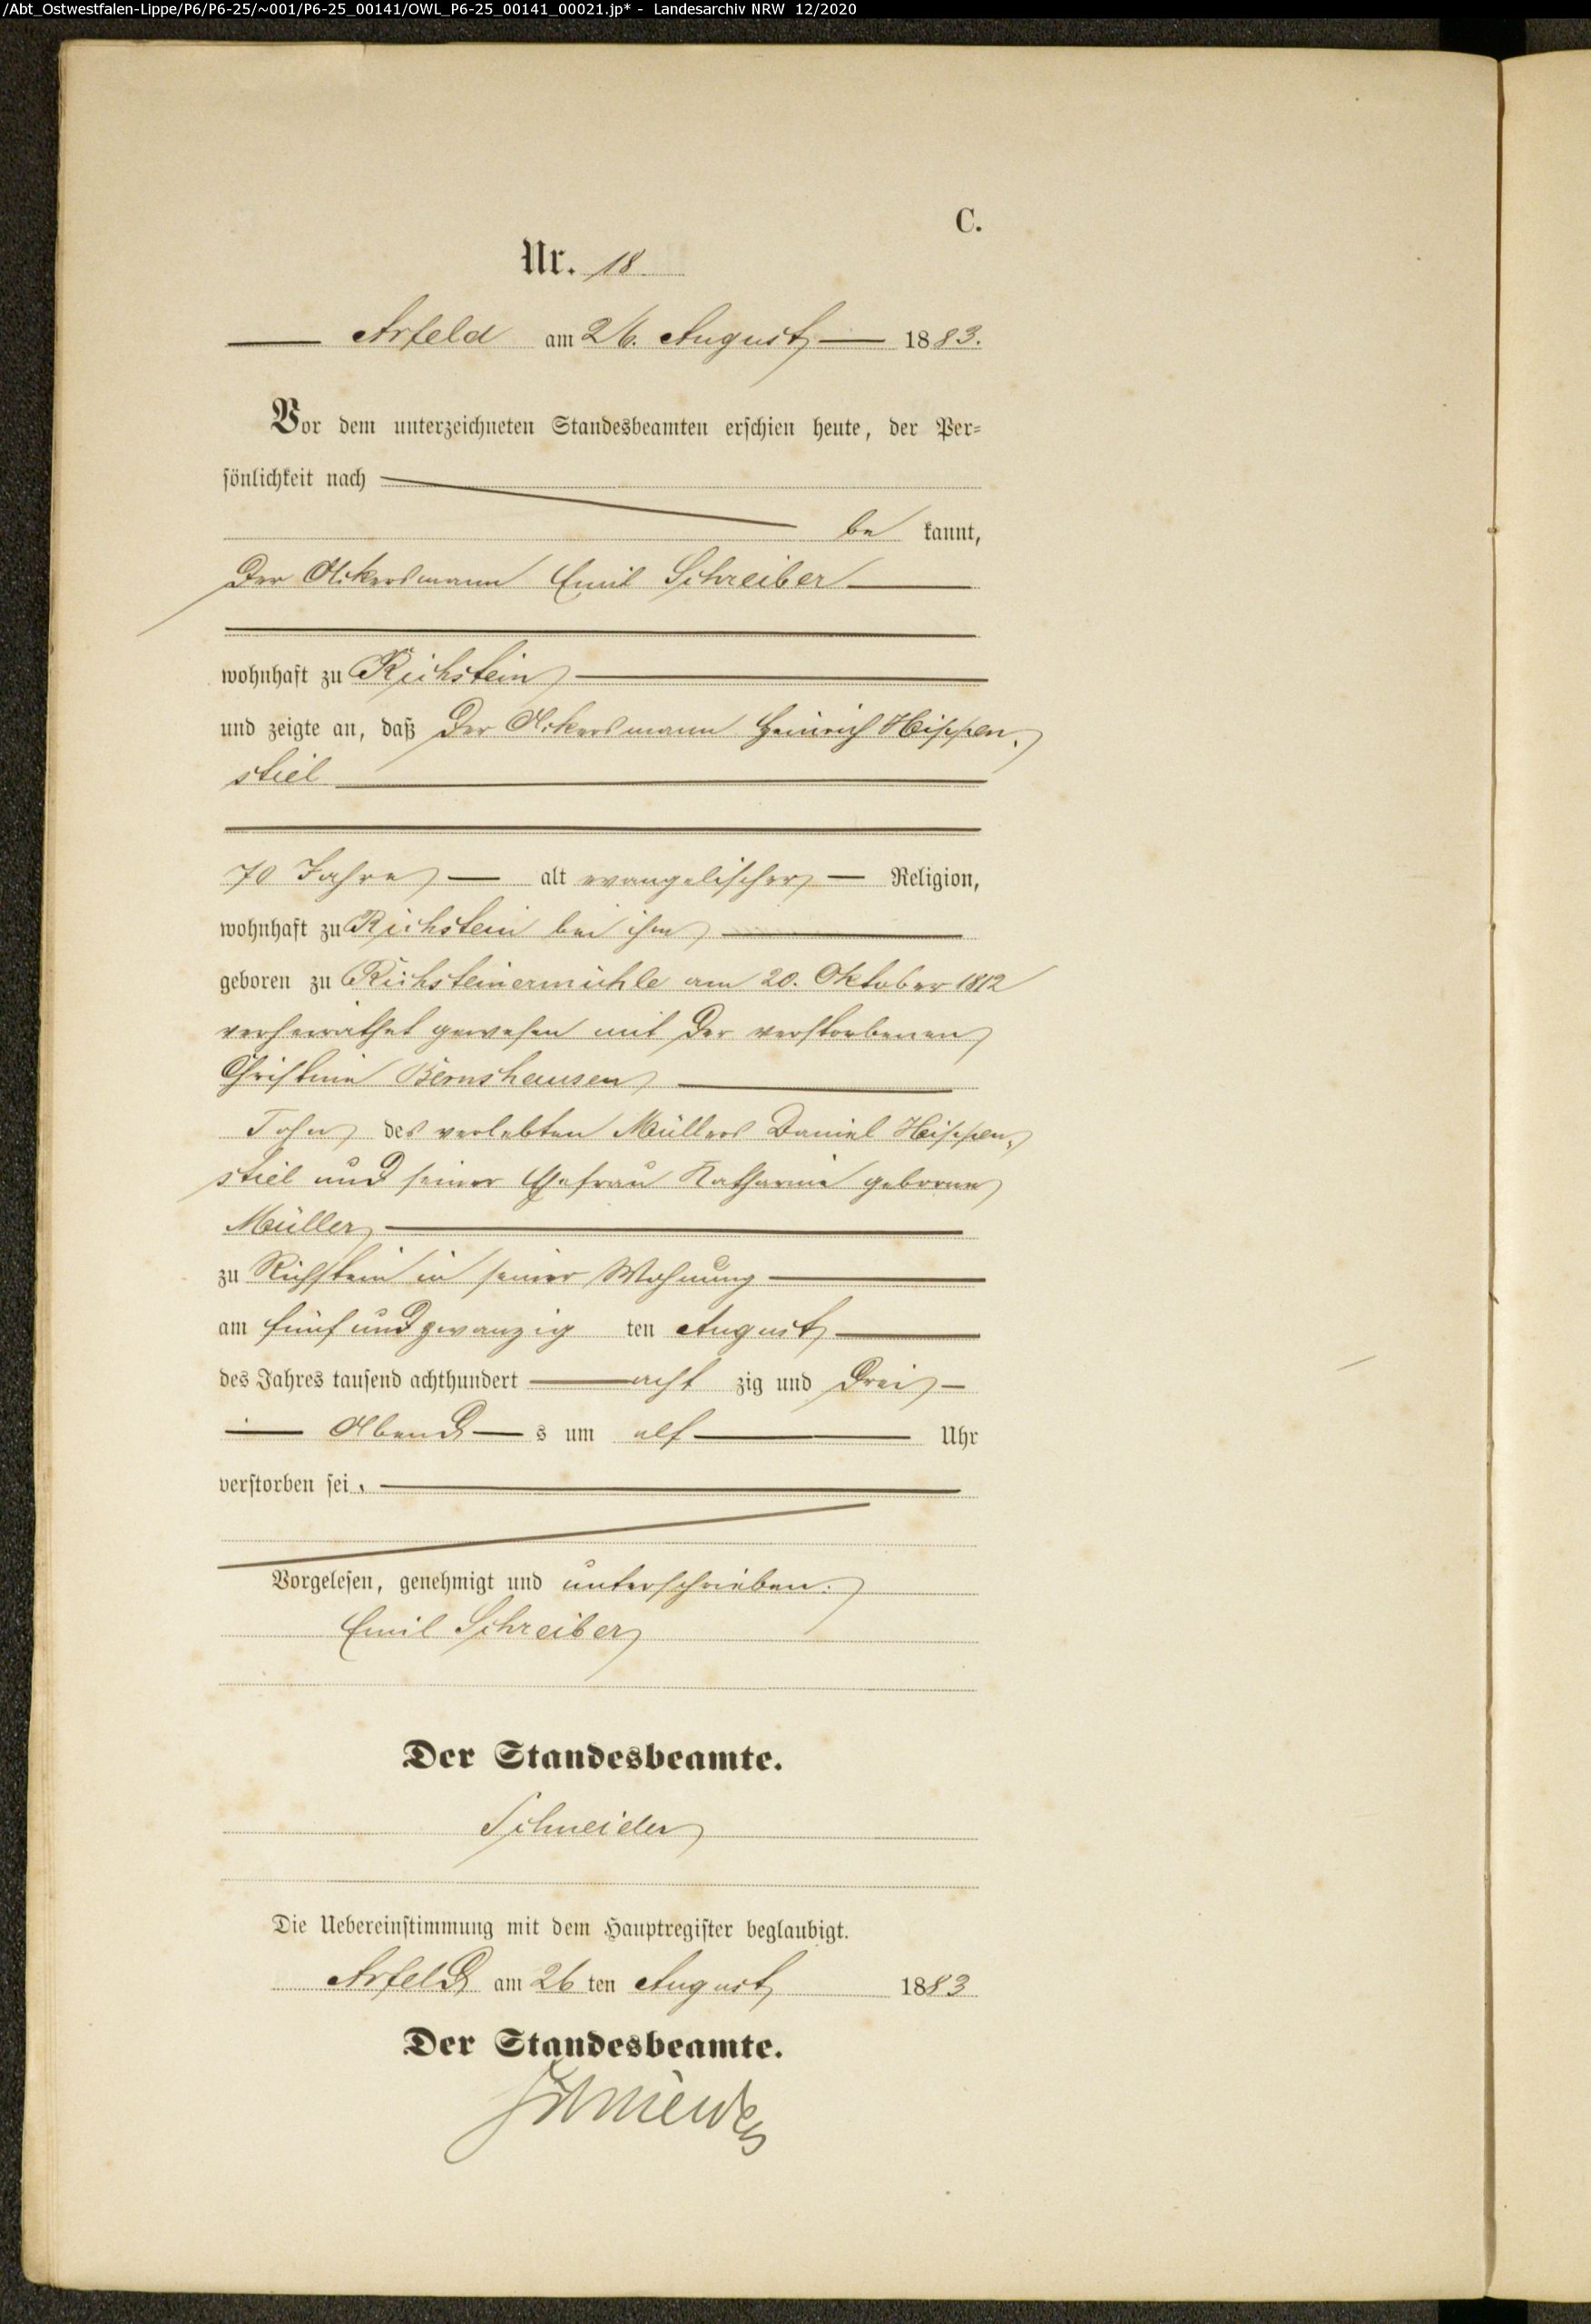 /Abt_Ostwestfalen-Lippe/P6/P6-25/~001/P6-25_00141/OWL_P6-25_00141_00021.jp* - Landesarchiv NRW 12/2020
C.
Nr. 18
Arfeld am 26. August 1883.
Vor dem unterzeichneten Standesbeamten erschien heute, der Per-
sönlichkeit nach
be kannt,
der Ackersmann Emil Schreiber
wohnhaft zu Richstein
und zeigte an, daß der Ackersmann Heinrich Hippen-
stiel
70 Jahre alt evangelischer Religion,
wohnhaft zu Richstein bei ihm
geboren zu Richsteinermühle am 20. Oktober 1812
verheirathet gewesen mit der verstorbenen
Christine Bernshausen
Sohn des verlebten Müllers Daniel Hippen-
stiel und seiner Ehefrau Katharine geborene
Müller
zu Richstein in seiner Wohnung
am fünf und zwanzig ten August
des Jahres tausend achthundert acht zig und drei
Abend s um elf Uhr
verstorben sei.
Vorgelesen, genehmigt und unterschrieben.
Emil Schreiber
Der Standesbeamte.
Schneider
Die Uebereinstimmung mit dem Hauptregister beglaubigt.
Arfeld am 26 ten August 1883
Der Standesbeamte.
Schneider